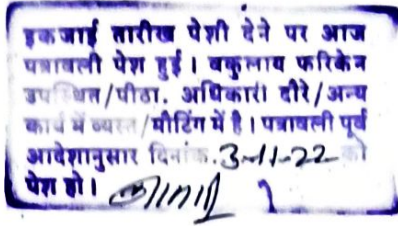 इकजाई तारीख पेशी देने पर आज
पत्रावली पेश हुई। वकुलाय फरिकेन
उपस्थित/पीठा. अधिकारी दौरे/अन्य
कार्य में व्यस्त/मीटिंग में है। पत्रावली पूर्व
आदेशानुसार दिनांक. 3-11-22 को
पेश हो।